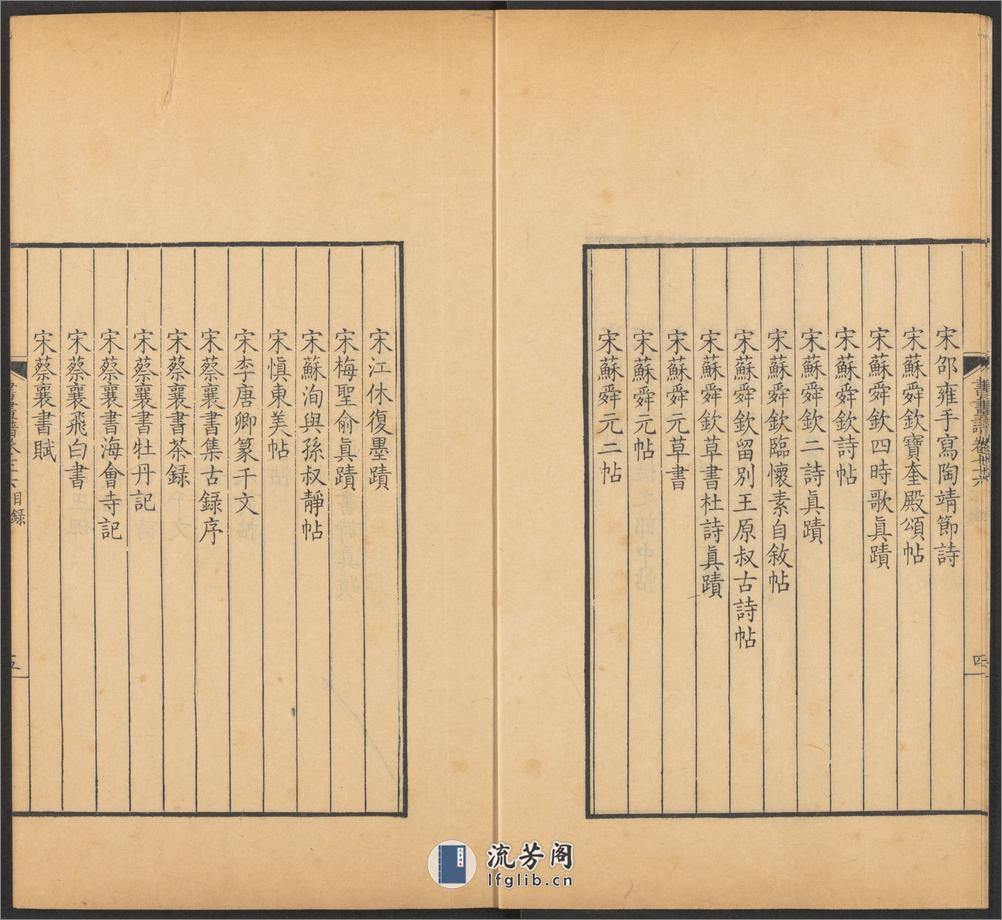 宋邵雍手寫陶靖節詩
宋蘇舜欽寶奎殿頌帖
宋蘇舜欽四時歌眞蹟
宋蘇舜欽詩帖
宋蘇舜欽二詩眞蹟
宋蘇舜欽臨懷素自敘帖
宋蘇舜欽留別王原叔古詩帖
宋蘇舜欽草書杜詩眞蹟
宋蘇舜元草書
宋蘇舜元帖
宋蘇舜元二帖
四
宋江休復墨蹟
宋梅聖俞眞蹟
宋蘇洵與孫叔靜帖
宋愼東美帖
宋李唐卿篆千文
宋蔡襄書集古録序
宋蔡襄書茶録
宋蔡襄書牡丹記
宋蔡襄書海會寺記
宋蔡襄飛白書
宋蔡襄書賦
五
流芳阁
lfglib.cn